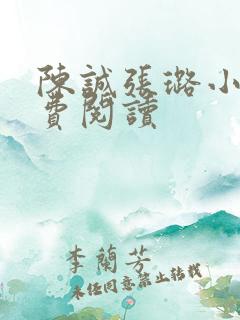 陳誠張璐小
費閱讀
李蘭芳
未經同意禁止轉載